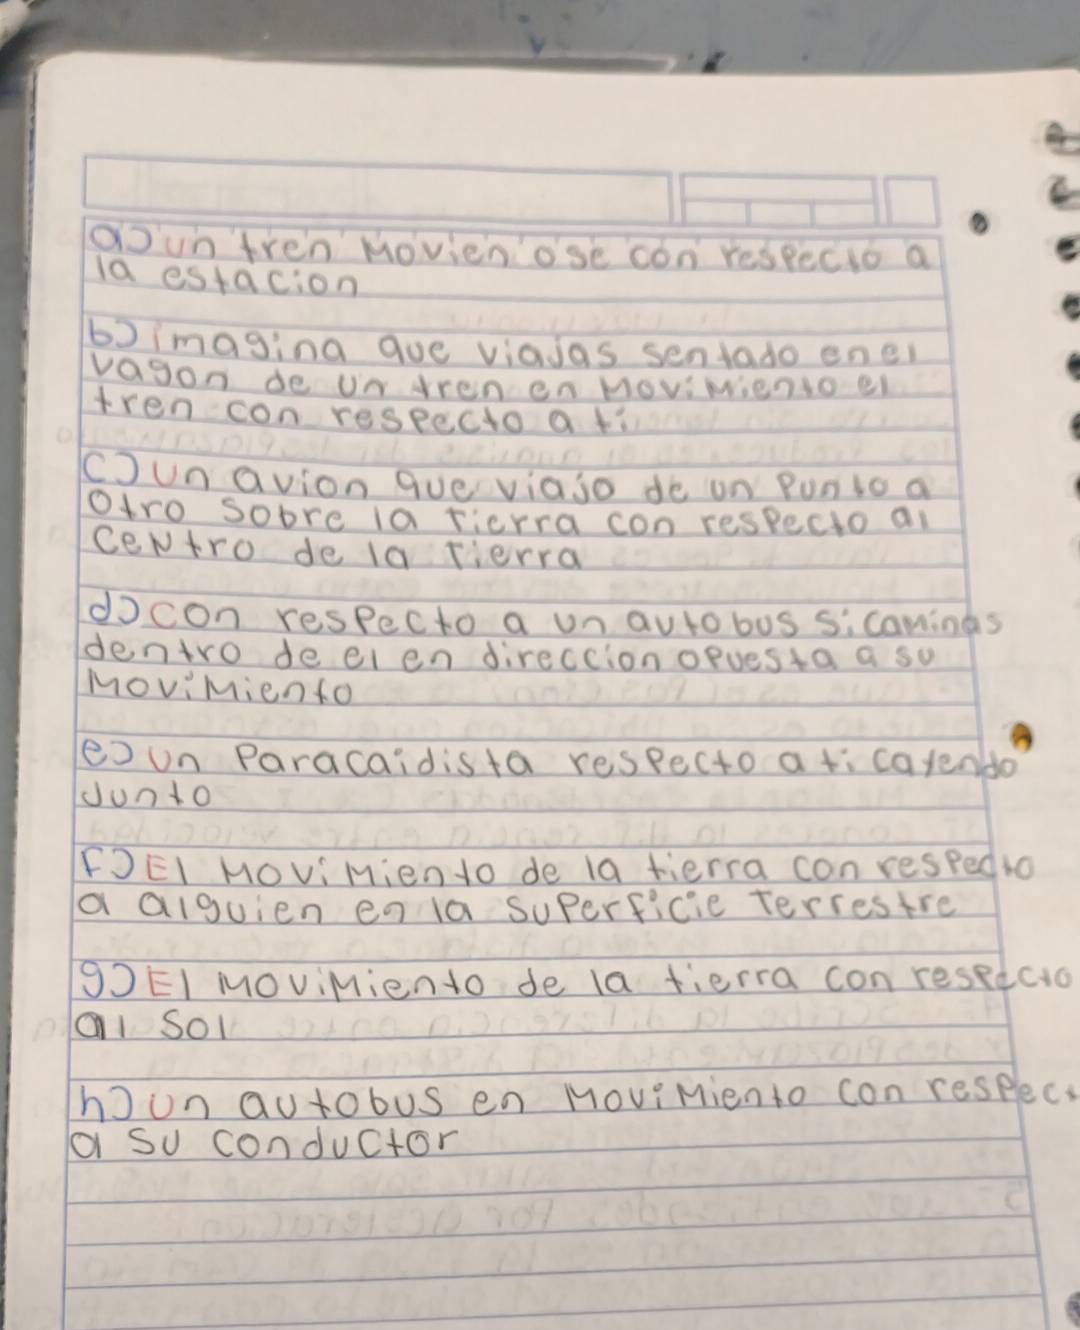 a) un tren Movien ose con respecto a
la estacion
b) imagina que viajas sentado en el
vagon de un tren en Movimiento el
tren con respecto a ti
c) un avion que viajo de un punto a
otro sobre la Tierra con respecto al
centro de la Tierra
d) con respecto a un autobus si caminas
dentro de el en direccion opuesta a su
Movimiento
e) un Paracaidista respecto a ti cayendo
Junto
F) El Movimiento de la tierra con respecto
a alguien en la superficie Terrestre
g) El Movimiento de la tierra con respecto
al sol
h) un autobus en Movimiento con respect
a su conductor